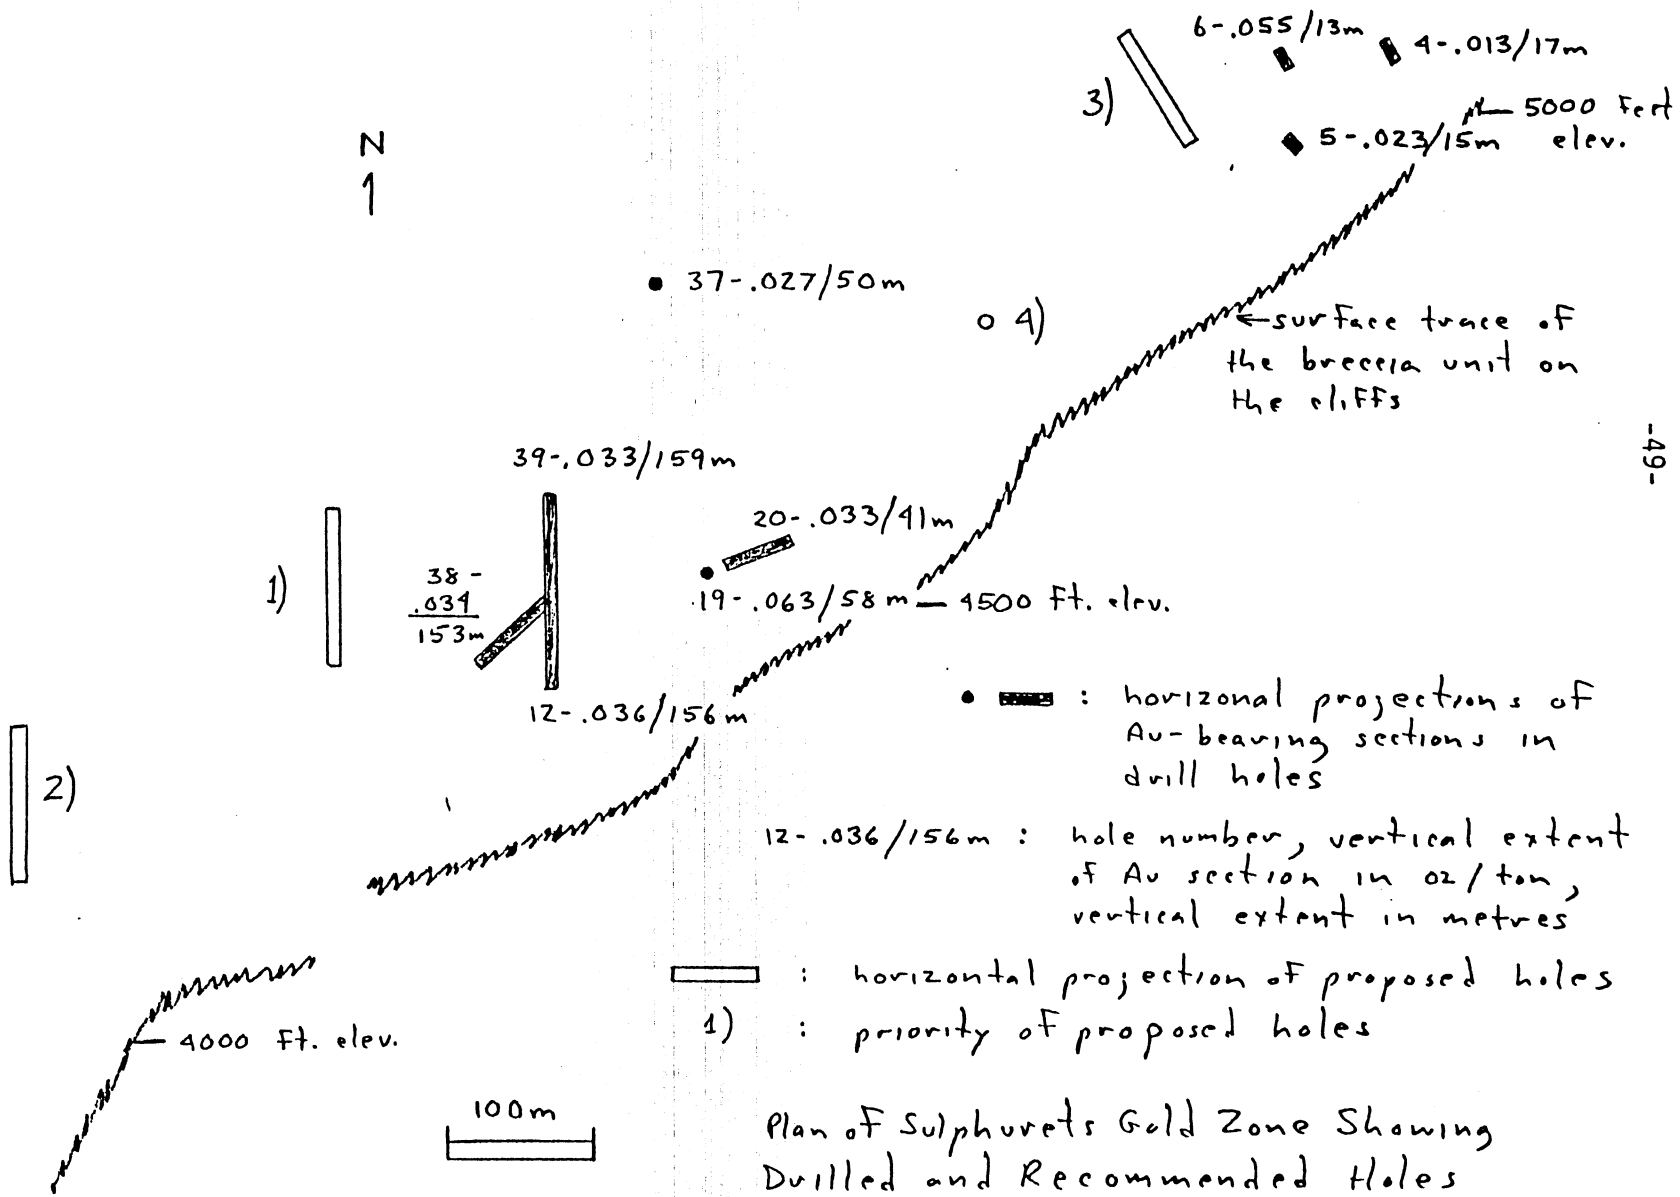 6-.055/13m
4-.013/17m
3)
5000 Feet
elev.
5-.023/15m
N
1
37-.027/50m
o 4)
←surface trace of
the breccia unit on
the cliffs
-49-
39-.033/159m
20-.033/41m
1)
38-
.034
153m
19-.063/58m
4500 Ft. elev.
12-.036/156m
2)
: horizonal projections of
Au-bearing sections in
drill holes
12-.036/156m : hole number, vertical extent
of Au section in oz/ton,
vertical extent in metres
: horizontal projection of proposed holes
1) : priority of proposed holes
4000 Ft. elev.
100m
Plan of Sulphurets Gold Zone Showing
Drilled and Recommended Holes